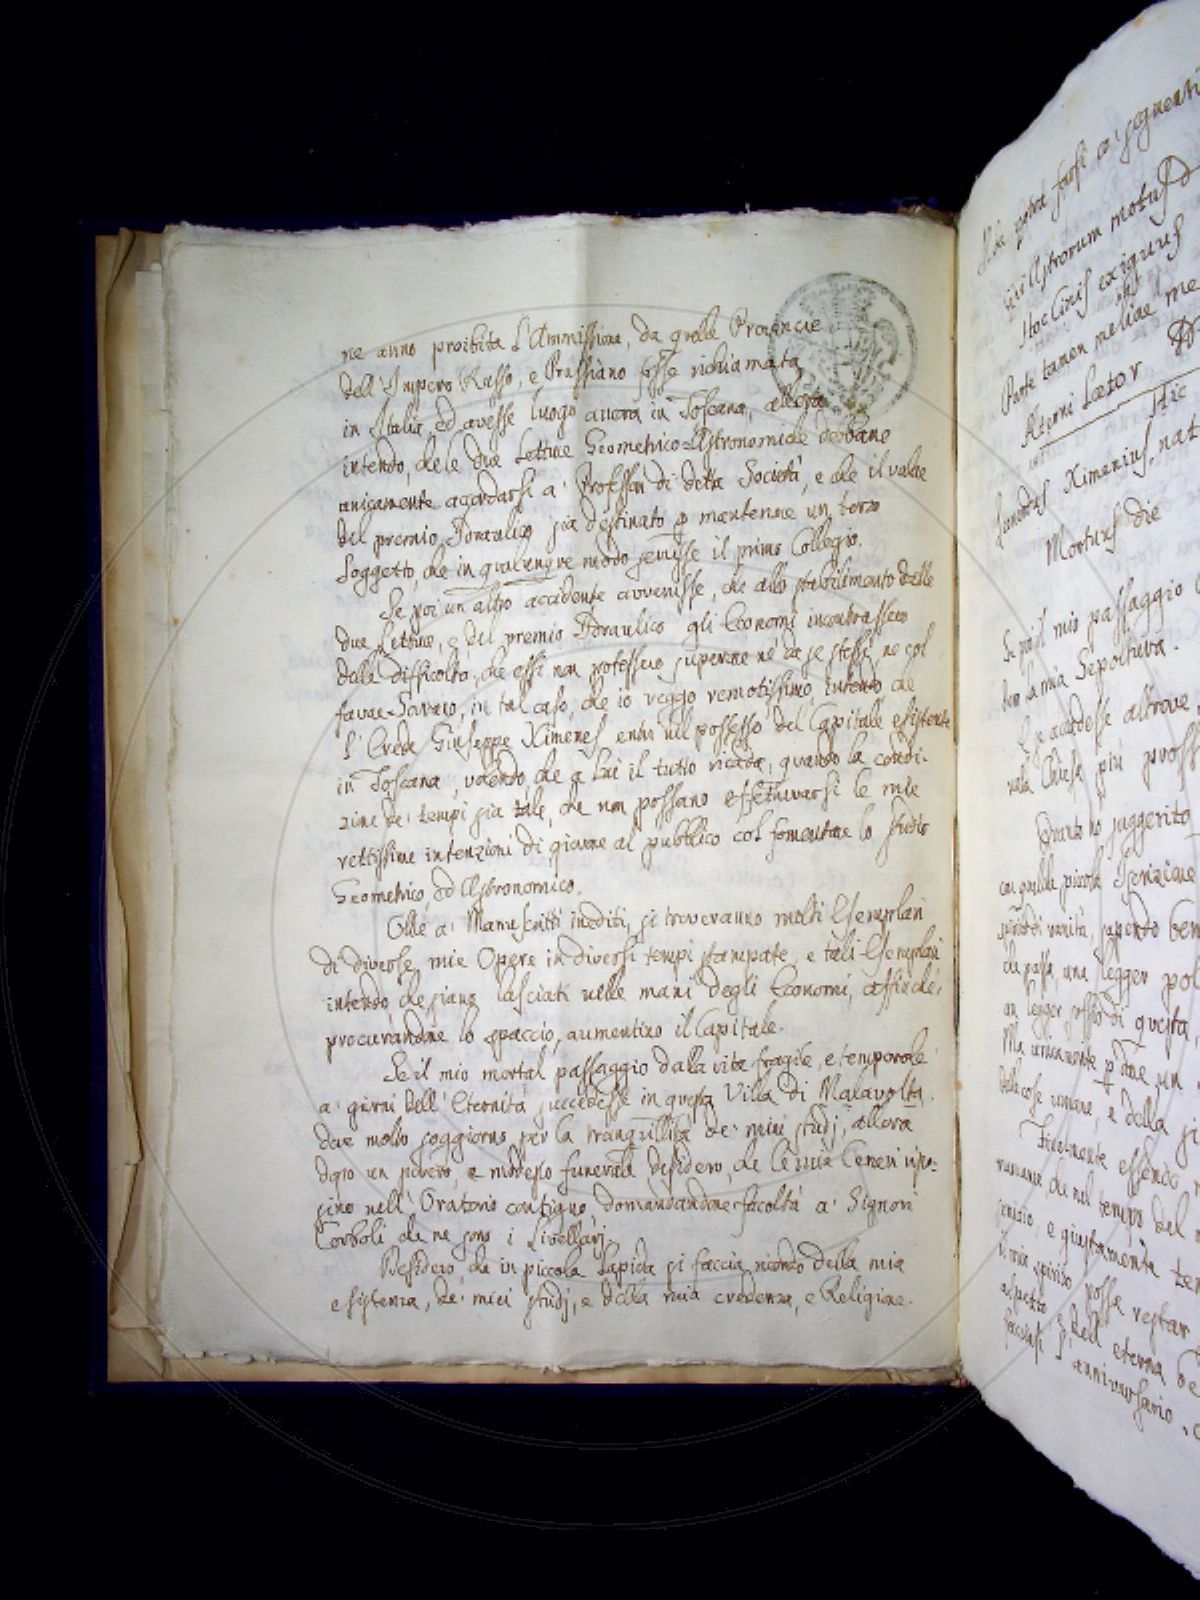 ne anno proibita l'Ammissione, da quelle Provincie
dell'Impero Russo, e Prussiano fosse richiamata
in Italia, ed avesse luogo ancora in Toscana, allora
intendo, che le due Letture Geometrico-Astronomiche debbano
unicamente accordarsi a' Professori di detta Società, e che il valore
del premio Idraulico sia destinato p mantenerne un terzo
Soggetto, che in qualunque modo servisse il primo Collegio.
Se poi un altro accidente avvenisse, che allo stabilimento delle
due Letture, e del premio Idraulico gli Economi incontrassero
delle difficoltà, che essi non potessero superare nè da se stessi, ne col
favore Sovrano, in tal caso, che io veggo remotissimo intendo che
l'Erede Giuseppe Ximenes entri nel possesso del Capitale esistente
in Toscana, volendo, che a lui il tutto ricada, quando la condi-
zione de' tempi sia tale, che non possano effettuarsi le mie
rettissime intenzioni di giovare al pubblico col fomentare lo studio
Geometrico, ed Astronomico.
Oltre a' Manuscritti inediti, si troveranno molti Esemplari
di diverse mie Opere in diversi tempi stampate, e tali Esemplari
intendo, che siano lasciati nelle mani degli Economi, affinchè,
procurandone lo spaccio, aumentino il Capitale.
Se il mio mortal passaggio dalla vita fragile, e temporale
a' giorni dell'Eternità succedesse in questa Villa di Malavolta,
dove molto soggiorno per la tranquillità de' miei studj, allora
dopo un povero, e modesto funerale desidero, che le mie Ceneri ripo-
sino nell'Oratorio contiguo domandandone facoltà a' Signori
Corboli che ne sono i Livellarj.
Desidero che in piccola Lapida si faccia ricordo della mia
esistenza, de' miei studj, e della mia credenza, e Religione.
potrà farsi co' seguenti
Astrorum motus
Hoc Cinis exiguus
Parte tamen meliore me
Aeterni Lator
Hic
Leonardus Ximenius, nat
Mortuus die
Se poi il mio passaggio
la mia Sepoltura.
E se accadesse altrove,
nella Chiesa più pross
Quanto ho suggerito
con qualche piccola Iscrizione
di vanità, sapendo ben
che passa, una legger pol
un legger soffio di questa,
Ma unicamente p dare un
delle cose umane, e della
Finalmente essendo
che nel tempo del
e giustamente te
il mio spirito possa restar
aspetto dell'eterna be
anniversario.